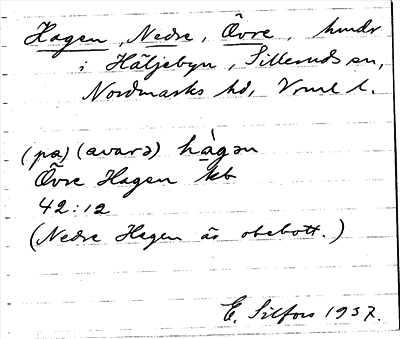 Hagen, Nedre, Övre, hmdr
i Häljebyn, Sillerud sn,
Nordmarks hd, Vrml l.
(pa) (avarə) hàgən
Övre Hagen kb
42:12
(Nedre Hagen är obebott.)
E. Silfors 1937.